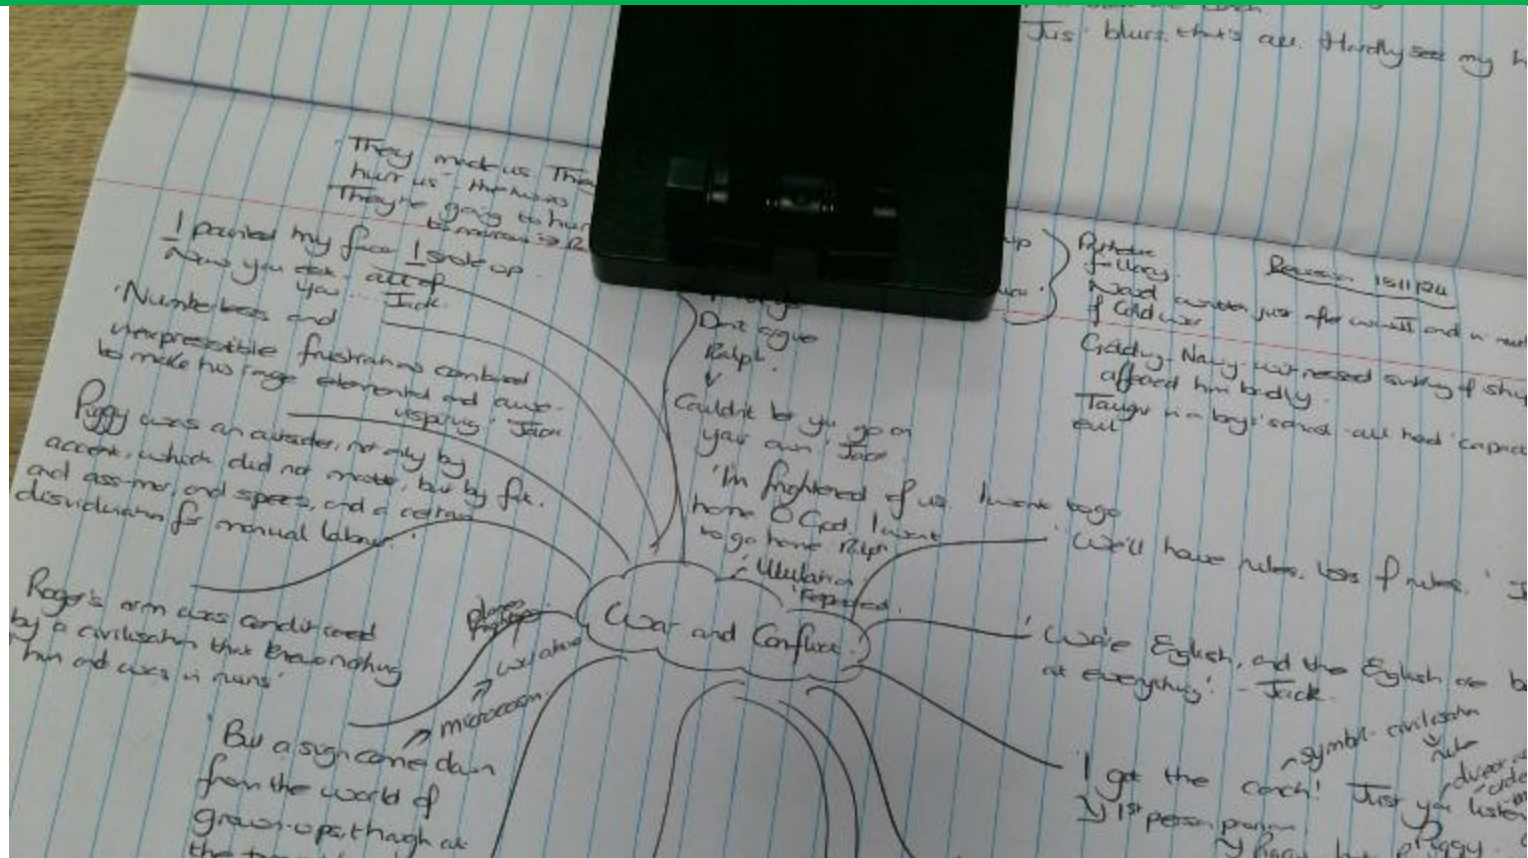 Jus' blurs, that's all. Hardly see my h
'They
hurt us
They're going to hur
I painted my face I stole up.
Now you all of
you... Jack.
'Numberless and
inexpressible frustrations combined
to make his rage elemental and awe-
inspiring' Jack
Piggy was an outsider, not only by
accent, which did not matter, but by fat,
and ass-mar, and specs, and a certain
disinclination for manual labour.'
Roger's arm was conditioned
by a civilisation that knew nothing
him and was in ruins'
microcosm
'But a sign came down
from the world of
grown-ups, though at
Don't argue
Ralph.
Couldn't let you go on
your own' Jack.
'I'm frightened of us. I want to go
home O God, I want
to go home' Ralph
'Ululation
War and Conflict.
fallacy.
Revision 15/11/24
Novel written just after WWII and in
of Cold War
Golding - Navy - witnessed sinking of ship
affected him badly.
Taught in a boys' school - all had 'capac
evil
'We'll have rules. Lots of rules.'
'We're English, and the English are be
at everything'. - Jack.
symbol - civilisation
'I got the conch! Just you listen
1st person pronoun
Piggy